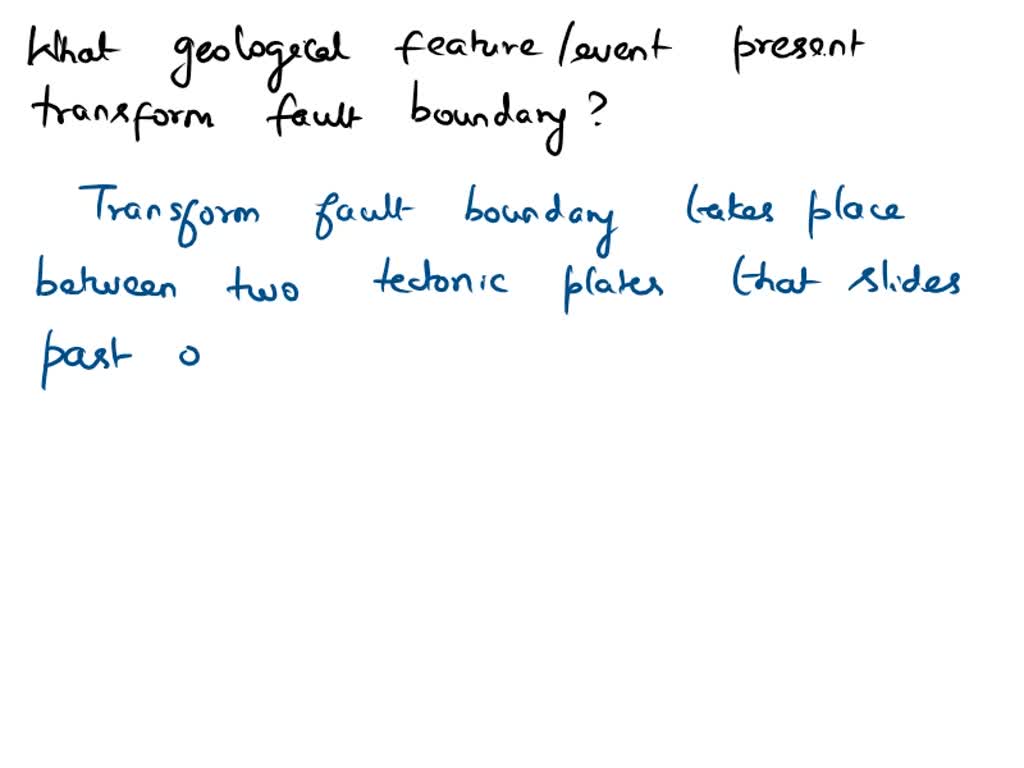 What geological feature/event present
transform fault boundary?
Transform fault boundary takes place
between two tectonic plates that slides
past o